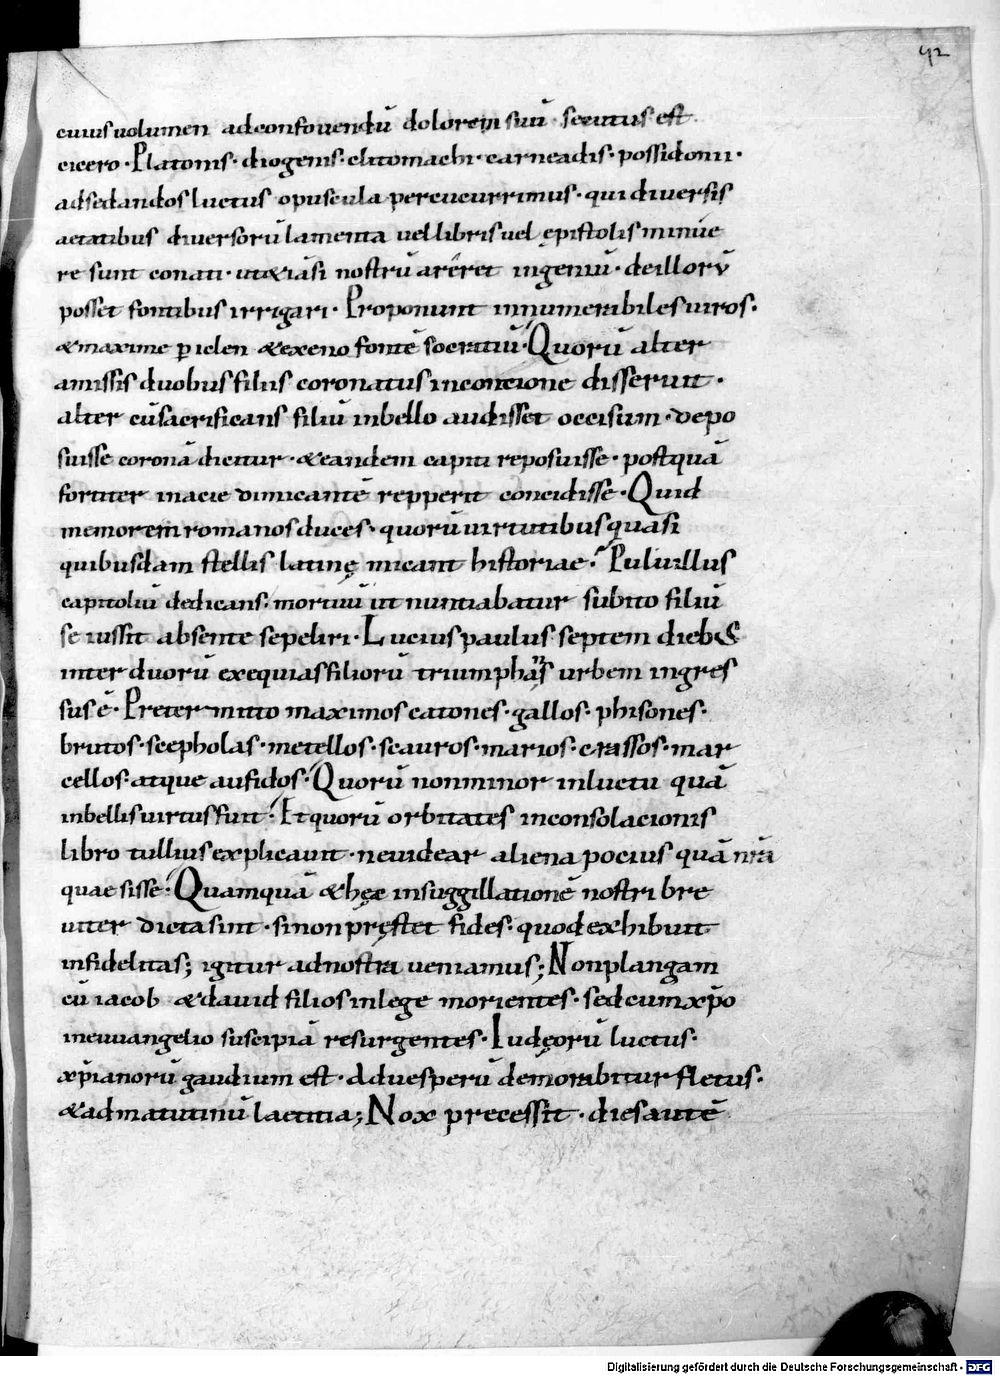 42
cuius volumen ad confovendū dolorem suū · secutus est
cicero · Platonis · diogenis · clitomachi · carneadis · possidonii ·
ad sedandos luctus opuscula percucurrimus · qui diversis
aetatibus diversorū lamenta vel libris vel ępistolis minue
re sunt conati · ut & iāsi nostrū aréret ingeniū · de illorv̄
posset fontibus irrigari · Proponunt innumerabiles viros ·
& maxime ꝑiclen & exenofontē socraticū · Quorū alter
amissis duobus filiis coronatus in concione disseruit ·
alter cū sacrificans filiū in bello audisset occisum · depo
suisse coronā dicitur · & eandem capiti reposuisse · postquā
fortiter in acie dimicantē repperit concidisse · Quid
memorem romanos duces · quorū virtutibus quasi
quibusdam stellis latinę micant historiae? Pulvillus
capitoliū dedicans · mortuū ut nuntiabatur subito filiū
se iussit absente sepeliri · Lucius paulus septem dieb;
inter duorū exequias filiorū triumphās urbem ingres
sus ē · Pretermitto maximos catones · gallos · phisones ·
brutos · scepholas · metellos · scauros · marios · crassos · mar
cellos · atque aufidos · Quorū non minor in luctu quā
in bellis virtus fuit? Et quorū orbitates in consolacionis
libro tullius explicavit · ne videar aliena pocius quā nr̄a
quaesisse? Quamquā & hęc in suggillationē nostri bre
viter dicta sint · si non pręstet fides · quod exhibuit
infidelitas; igitur ad nostra veniamus; Non plangam
cū iacob & david filios in lege morientes · sed cum xp̄o
in euuangelio suscipiā resurgentes · Iudęorū luctus ·
xp̄ianorū gaudium est · Ad vesperū demorabitur fletus ·
& ad matutinū laetitia; Nox precessit · dies autē
Digitalisierung gefördert durch die Deutsche Forschungsgemeinschaft · DFG